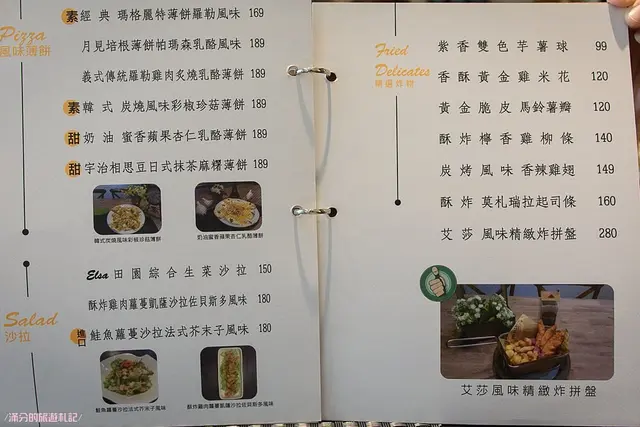 Pizza
風味薄餅
素 經典 瑪格麗特薄餅羅勒風味 169
月見培根薄餅帕瑪森乳酪風味 189
義式傳統羅勒雞肉炙燒乳酪薄餅 189
素 韓式 炭燒風味彩椒珍菇薄餅 189
甜 奶油 蜜香蘋果杏仁乳酪薄餅 189
甜 宇治相思豆日式抹茶麻糬薄餅 189
韓式炭燒風味彩椒珍菇薄餅
奶油蜜香蘋果杏仁乳酪薄餅
Salad
沙拉
Elsa 田園綜合生菜沙拉 150
酥炸雞肉蘿蔓凱薩沙拉佐貝斯多風味 180
進口 鮭魚蘿蔓沙拉法式芥末子風味 180
鮭魚蘿蔓沙拉法式芥末子風味
酥炸雞肉蘿蔓凱薩沙拉佐貝斯多風味
Fried
Delicates
精選炸物
紫香雙色芋薯球 99
香酥黃金雞米花 120
黃金脆皮馬鈴薯瓣 120
酥炸檸香雞柳條 140
炭烤風味香辣雞翅 149
酥炸莫札瑞拉起司條 160
艾莎風味精緻炸拼盤 280
艾莎風味精緻炸拼盤
/滿分的旅遊札記/